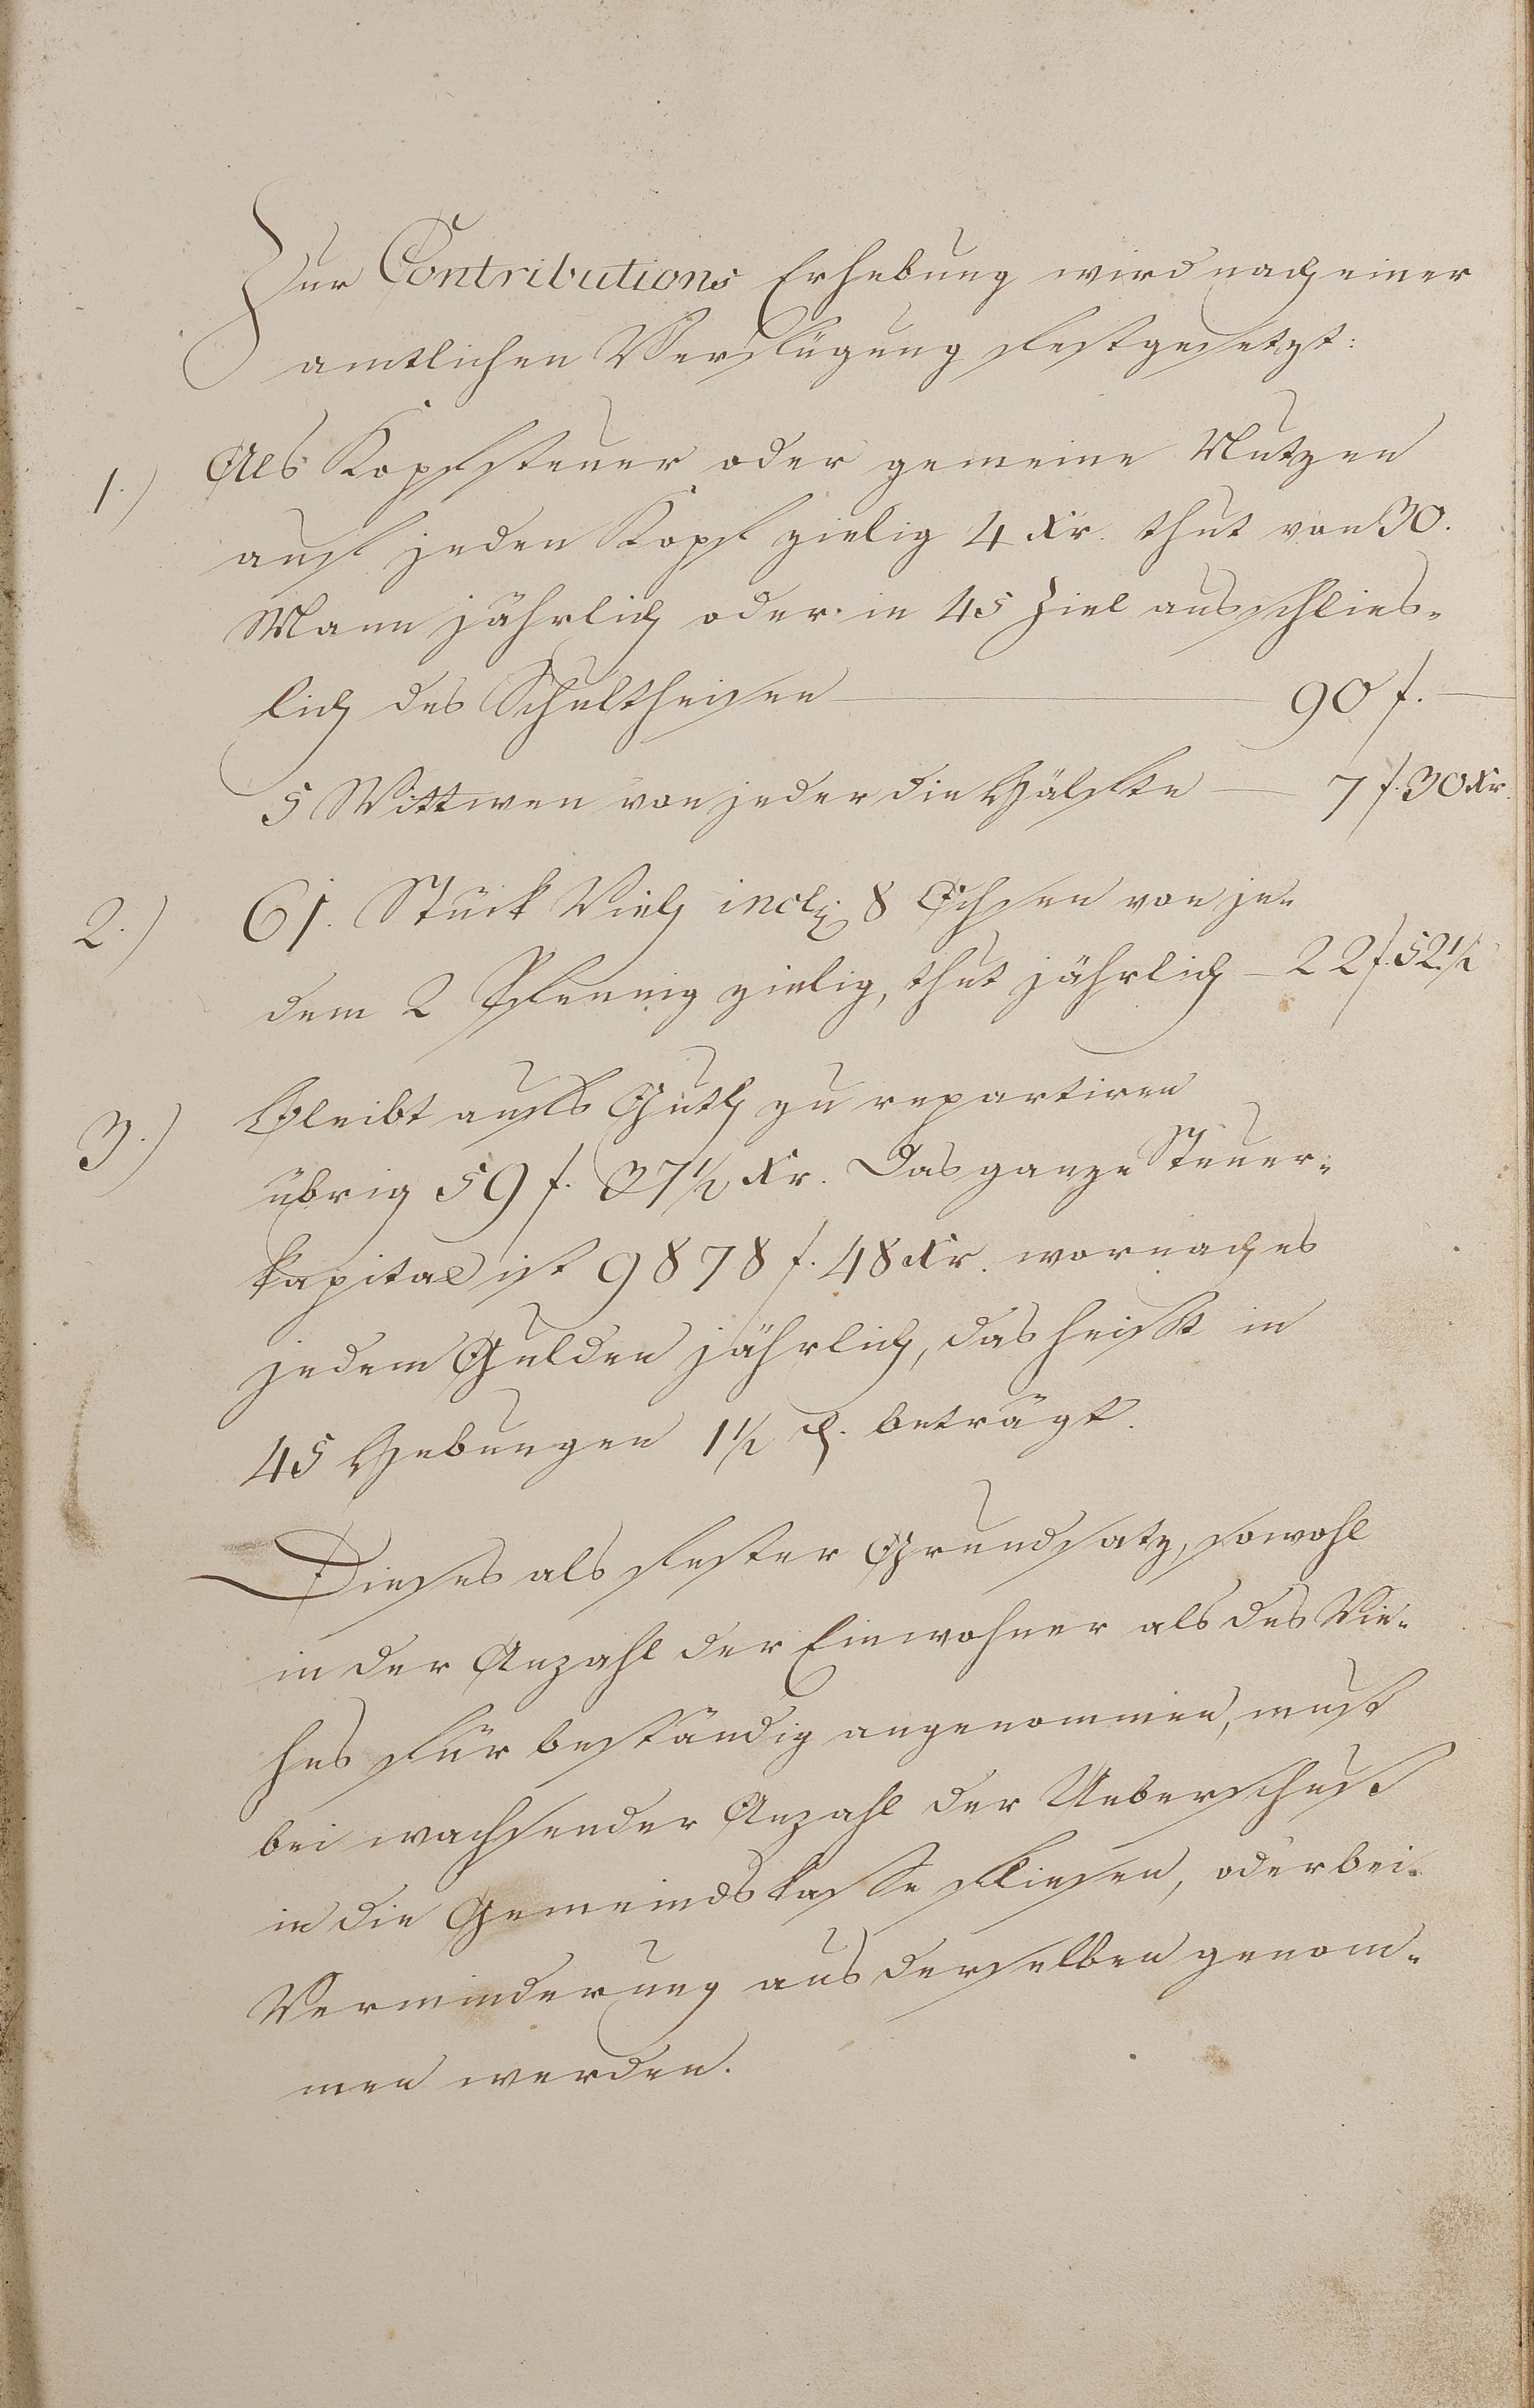 Zur Contributions Erhebung wird nach einer
amtlichen Verfügung festgesetzt:
1.) Als Kopfsteuer oder gemeine Nutzen
auf jeden Kopf zielig 4 Xr. thut von 30.
Mann jährlich oder in 45 Ziel ausschlies-
lich des Schultheisen — 90 f. —
5 Wittwen von jeder die Hälfte — 7 f. 30 Xr.
2.) 61. Stück Vieh incl: 8 Ochsen von je-
dem 2 Pfennig zielig, thut jährlich — 22 f. 52 1/2
3.) Bleibt aufs Guth zu repartiren
übrig 59 f. 37 1/2 Xr. Das ganze Steuer-
kapital ist 9878 f. 48 Xr. wornach es
jedem Gulden jährlich, das heißt in
45 Hebungen 1 1/2 ₰. beträgt.
Dieses als fester Grundsatz, sowohl
in der Anzahl der Einwohner als des Vie-
hes für beständig angenommen, muß
bei wachsender Anzahl der Ueberschuß
in die Gemeindskasse fliesen, oder bei
Verminderung aus derselben genom-
men werden.